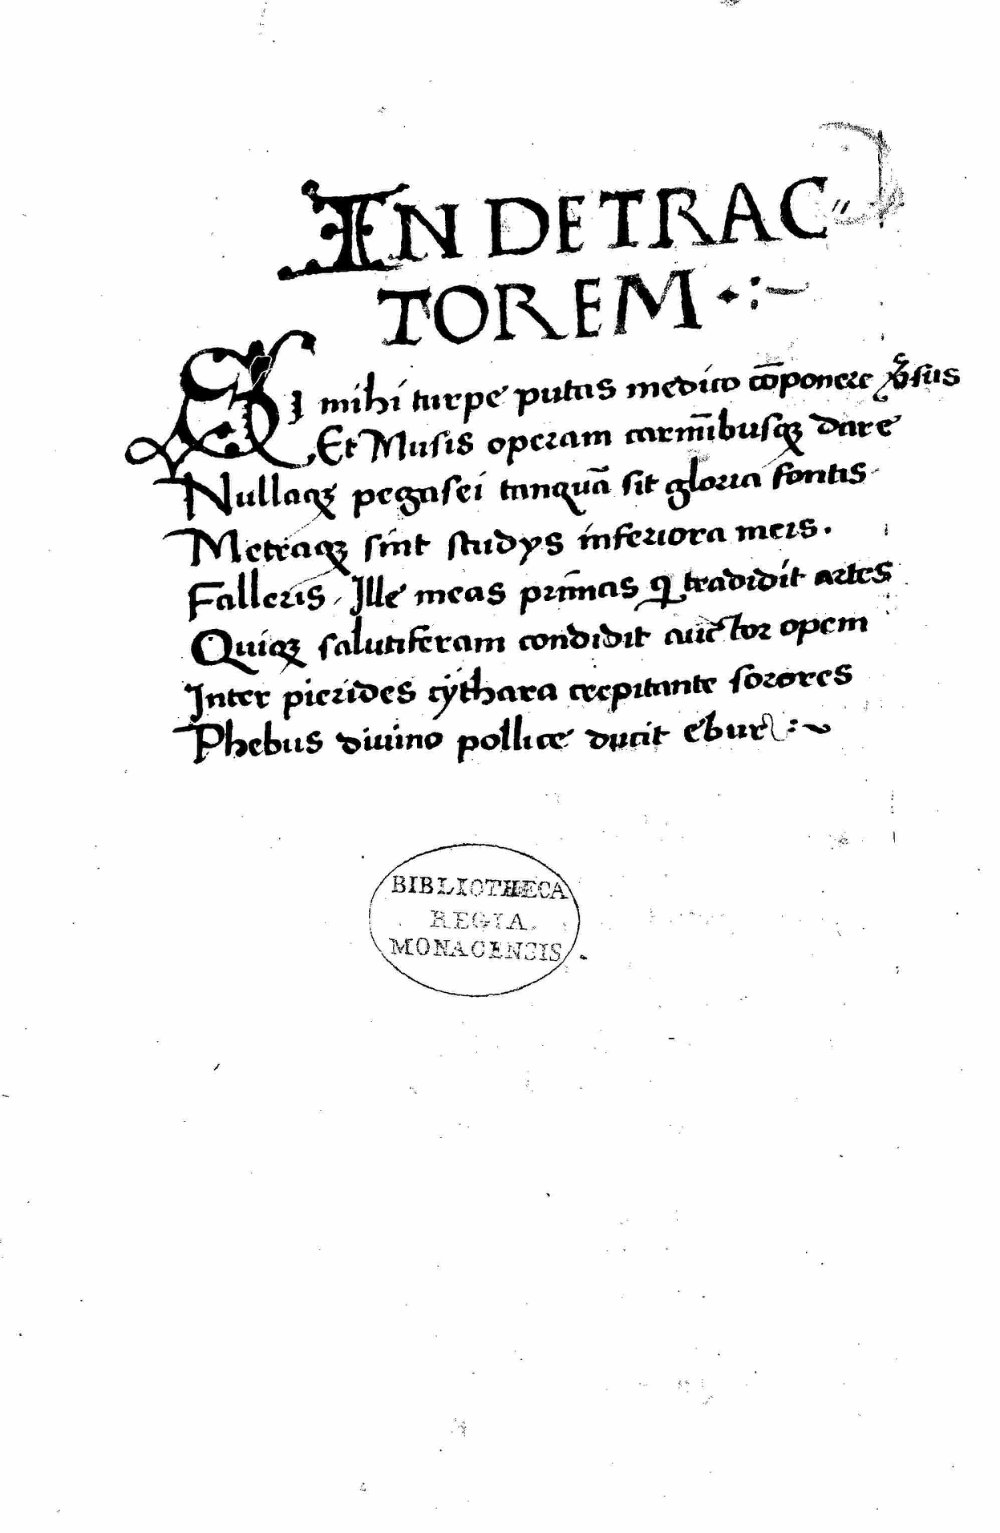 IN DETRAC〃
TOREM
SI mihi turpe putas medico cōponere ꝟsus
Et Musis operam carmĩbusqꝫ dare
Nullaqꝫ pegasei tanquã sit gloria fontis
Metraqꝫ sint studys inferiora meis.
Falleris / Ille meas prĩmas q tradidit artes
Quiqꝫ salutiferam condidit auctor opem
Inter pierides cythara crepitante sorores
Phebus diuino pollice ducit ebur
BIBLIOTHECA
REGIA
MONACENSIS